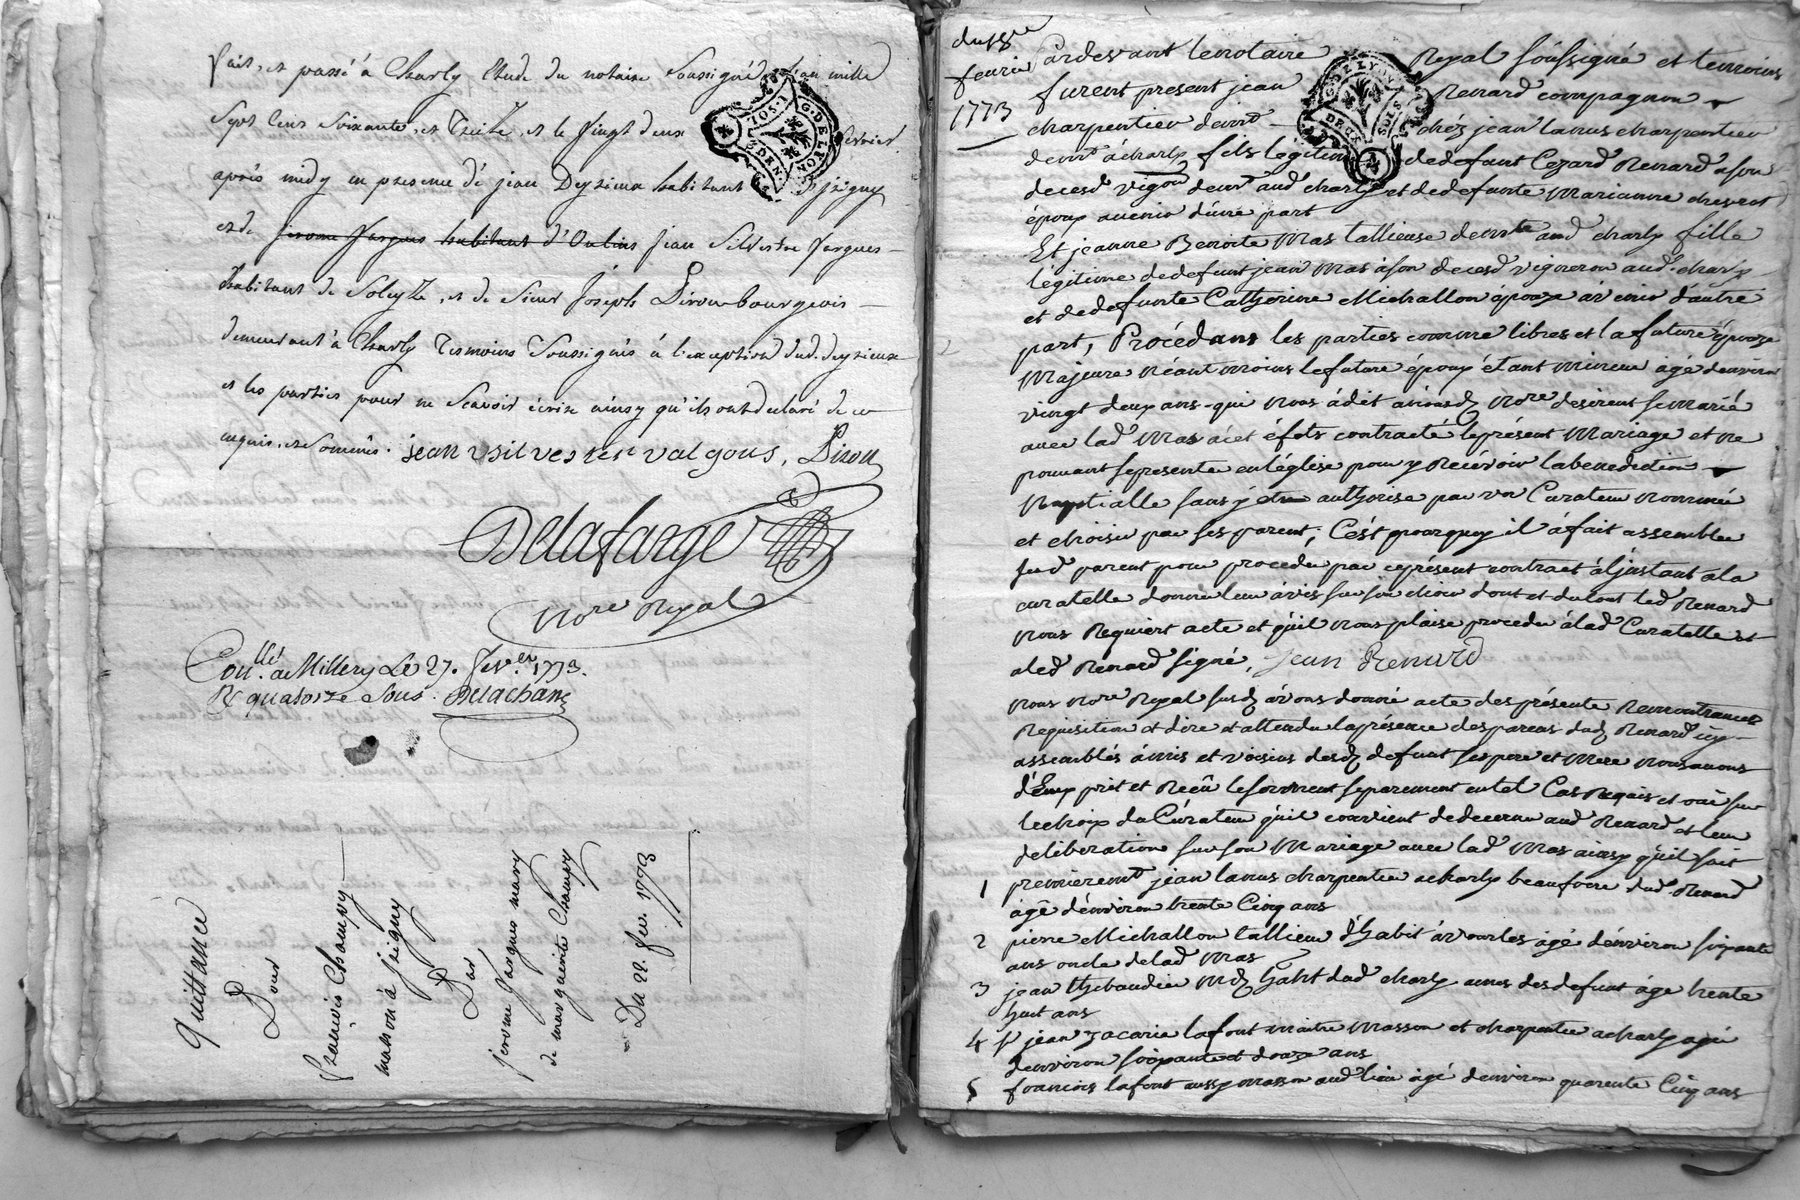 fait, et passé à Charly Etude du notaire Soussigné, l'an mille
Sept Cent Soixante, et Treize, et le Vingt deux fevrier
après midy en presence de jean Deyrieux habitant Jrigny
et de jerome Jargues habitant d'Oulins jean Silvestre Jargues
habitant de et de Sieur Joseph Piron bourgeois
demeurant à Charly Tesmoins Soussignés à l'exception dud. deyrieux
et les parties pour ne Scavoir écrire ainsy qu'ils ont declaré de ce
enquis, et Sommés. jean Piron
Delafarge
No.re Royal
Con.llé à Millery Le 27. fev.er 1773.
R quatorze Sous. Delachan
Quittance
Pour
francois Champy
masson à jrigny
Par
jerome Jargues mary
de marguerite Champy
Du 22. fev. 1773
105. I G. DE LYON
3 DEN.
du 28e
fevrie
1773
G. DE LYON
SOLS DEUX
Pardevant le notaire Royal soussigné et temoins
furent present jean Renard compagnon
charpentier demt chéz jean lanus charpentier
demt à charly fils legitime de defunt Cezard Renard a son
deces vigon demt aud charly et de defunte Marianne
époux avenir d'une part
Et jeanne Benoite Mas tallieuse demte aud charly fille
légitime de defunt jean Mas à son deces vigneron aud. charly
et de defunte Catherine Michallon épouze à venir d'autre
part, Procédans les parties comme libres et la future épouze
Majeure Néantmoins le future époux étant mineur agé denviron
vingt deux ans qui nous à dit avis No.re desirent se marié
avec lad Mas à cet éfets contracté le présent Mariage et ne
pouvant se presenter en léglise pour y Recévoir la benediction
Nuptialle sans y etre authorise par un Curateur nommé
et choisie par ses parent; C'est pourquoy il à fait assembler
sesd parent pour proceder par ce présent contract à l'jnstant a la
curatelle donner leur àvis sur son choix dont et du tout led Renard
nous Requiert acte et qu'il nous plaise proceder à lad Curatelle et
a led Renard signé, Jean Renard
Nous No.re Royal susd avons donné acte des présente Remontrances
Requisition et dire et attendu la présence des parens dud Renard icy
assemblés amis et voisins desd defunt ses pere et Mere nous avons
d'Eux prit et Reçû le serment separement en tel Cas Requis et oui sur
le choix du Curateur qu'il convient de decerner aud Renard et leur
deliberation sur son Mariage avec lad Mas ainsy qu'il suit
1 premierement jean lanus charpentier a charly beaufrere dud. Renard
âgé d'environ trente Cinq ans
2 pierre Michallon tallieur d'habit à vourles âgé d'environ soixante
ans oncle de lad Mas
3 jean thibaudier Md habt dud charly amis des defunt âgé trente
huit ans
4 Sr jean zacarie lafont maitre Masson et charpentier a charly agé
denviron soixante et douze ans
5 francois lafont aussy masson aud lieu âgé denviron quarente Cinq ans